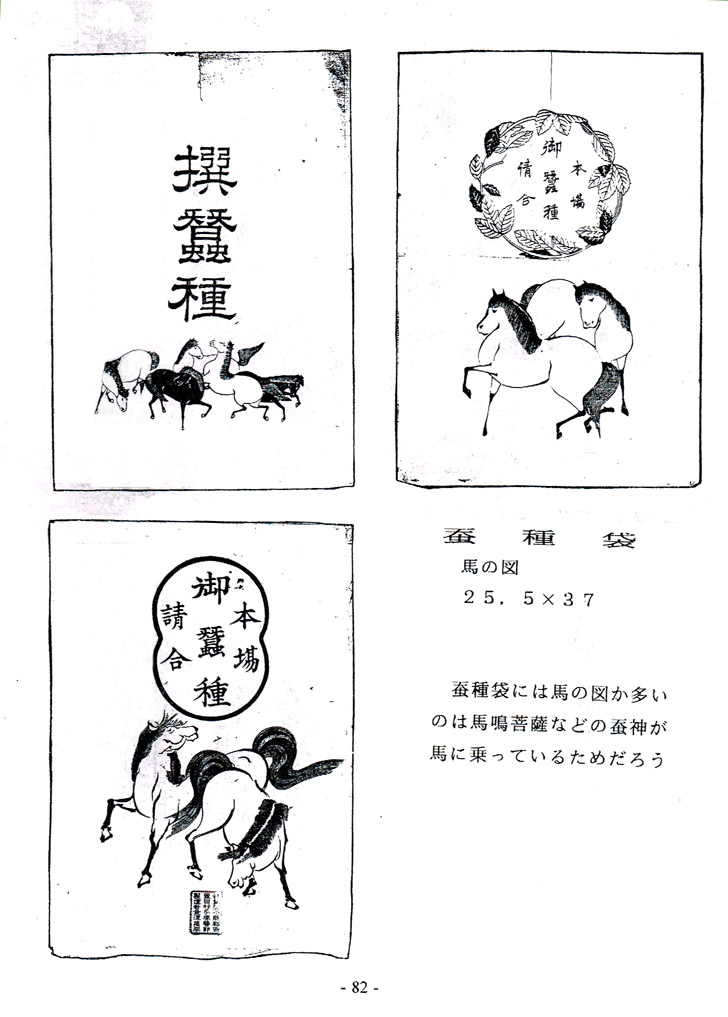 撰蠶種
本場
御蠶種
請合
本場
御蠶種
請合
蚕種袋
馬の図
25．5×37
蚕種袋には馬の図か多い
のは馬鳴菩薩などの蚕神が
馬に乗っているためだろう
- 82 -